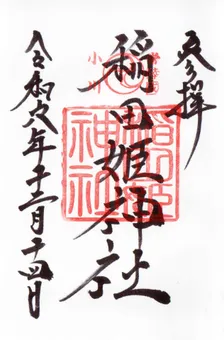 参拝
稲田姫神社
令和六年十二月十四日
稲田姫
神社